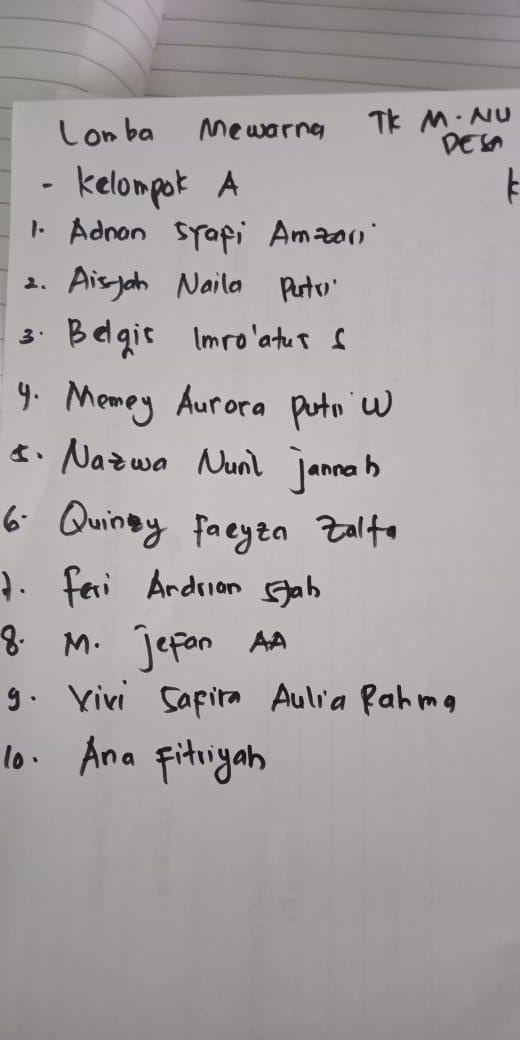 Lomba Mewarna TK M. NU
DESA
- Kelompok A
1. Adnan Syafi Amzari
2. Aisyah Naila Putri
3. Belqis Imro'atus S
4. Memey Aurora Putri W
5. Nazwa Nuril Jannah
6. Quinzy Faeyza Zalfa
7. Feri Andrian Syah
8. M. Jefan AA
9. Vivi Safira Aulia Rahma
10. Ana Fitriyah